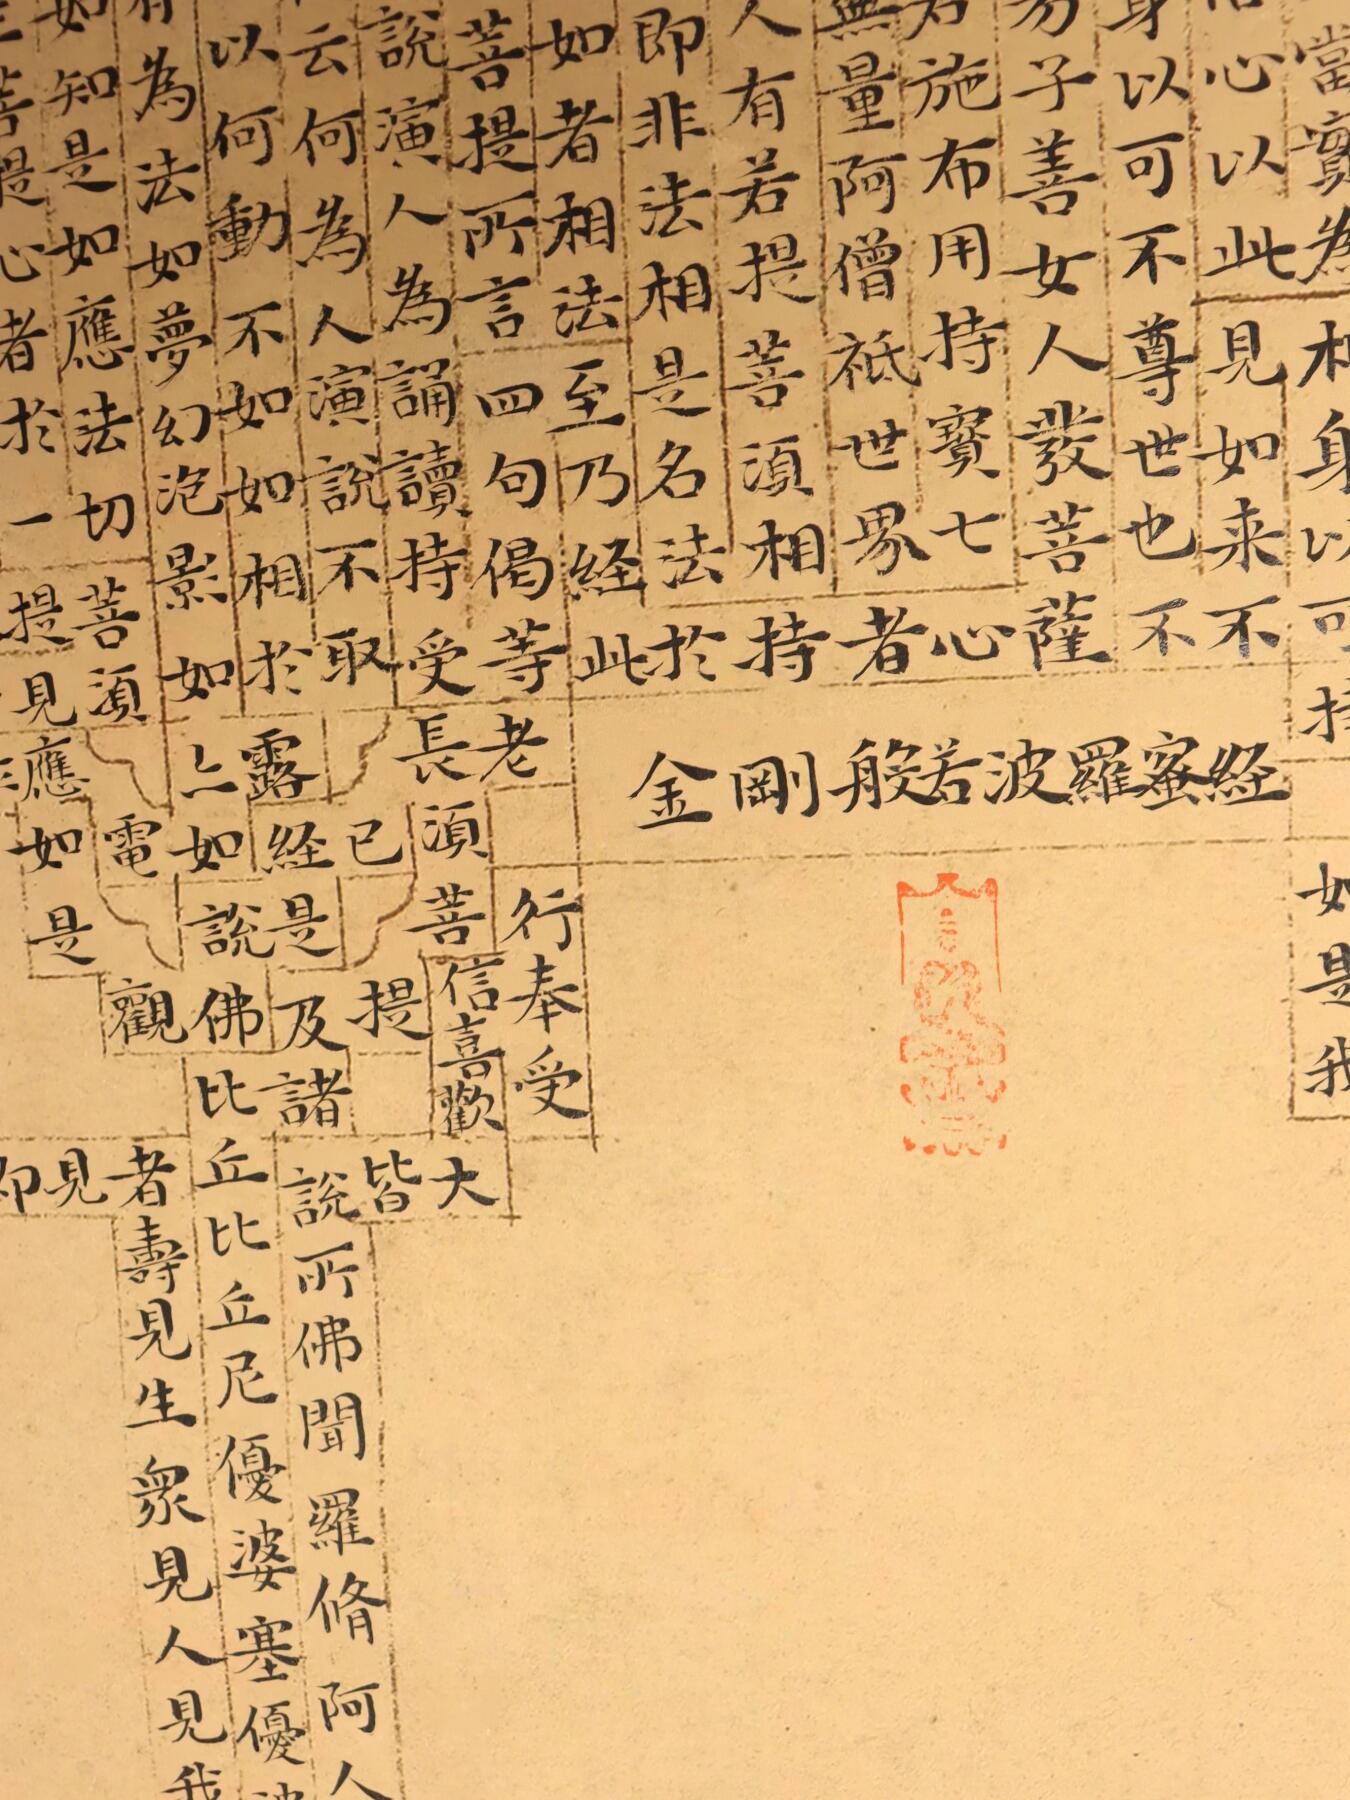 當寶為相身以可持
如是我
心以此見如来不
身以可不尊世也不
子善女人發菩薩
若施布用持寶七心
無量阿僧祇世界者
人有若提菩須相持
即非法相是名法於
如者相法至乃経此
金剛般若波羅蜜経
菩提所言四句偈等老
行奉受
說演人為誦讀持受長須菩
信喜歡大
云何為人演說不取
已
提
皆
以何動不如如相於露経是及諸說所佛聞羅脩阿人
有為法如夢幻泡影如
亦如說佛比丘比丘尼優婆塞優婆
電
觀
者壽見生衆見人見我
如知是如應法切菩須
菩提心者於一提見
應如是
見
即